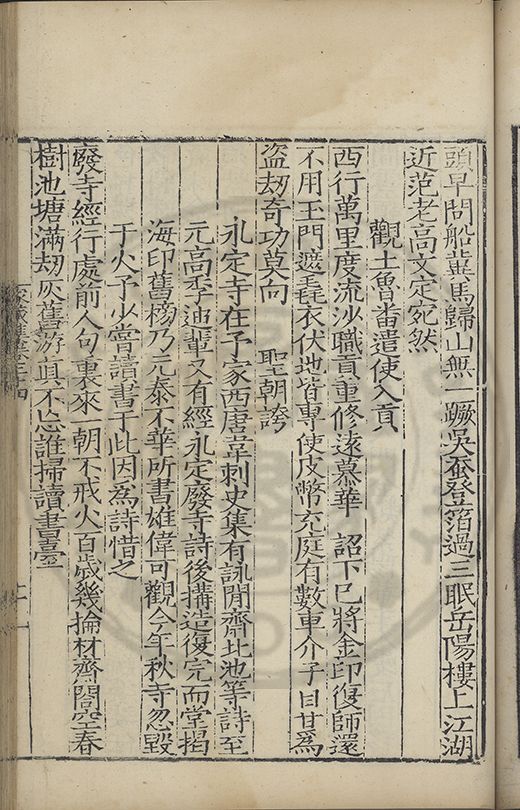 頭早問船葬馬歸山無一蹶吳蚕登箔過三眠岳陽樓上江湖
近范老高文定宛然
觀土魯畨遣使入貢
西行萬里度流沙職貢重修遠慕華　詔下已將金印復師還
不用玉門遮毳衣伏地皆專使皮幣充庭有數車介子目甘爲
盗刼奇功莫向　聖朝誇
永定寺在予家西唐韋刺史集有詠閒齋北池等詩至
元高季迪輩又有經永定廢寺詩後搆造復完而堂揭
海印舊榜乃元泰不華所書雄偉可觀今年秋寺忽毀
于火予少嘗讀書于此因爲詩惜之
廢寺經行處前人句裏來一朝不戒火百歲幾掄材齋閣空春
樹池塘滿刼灰舊游眞不忘誰掃讀書臺